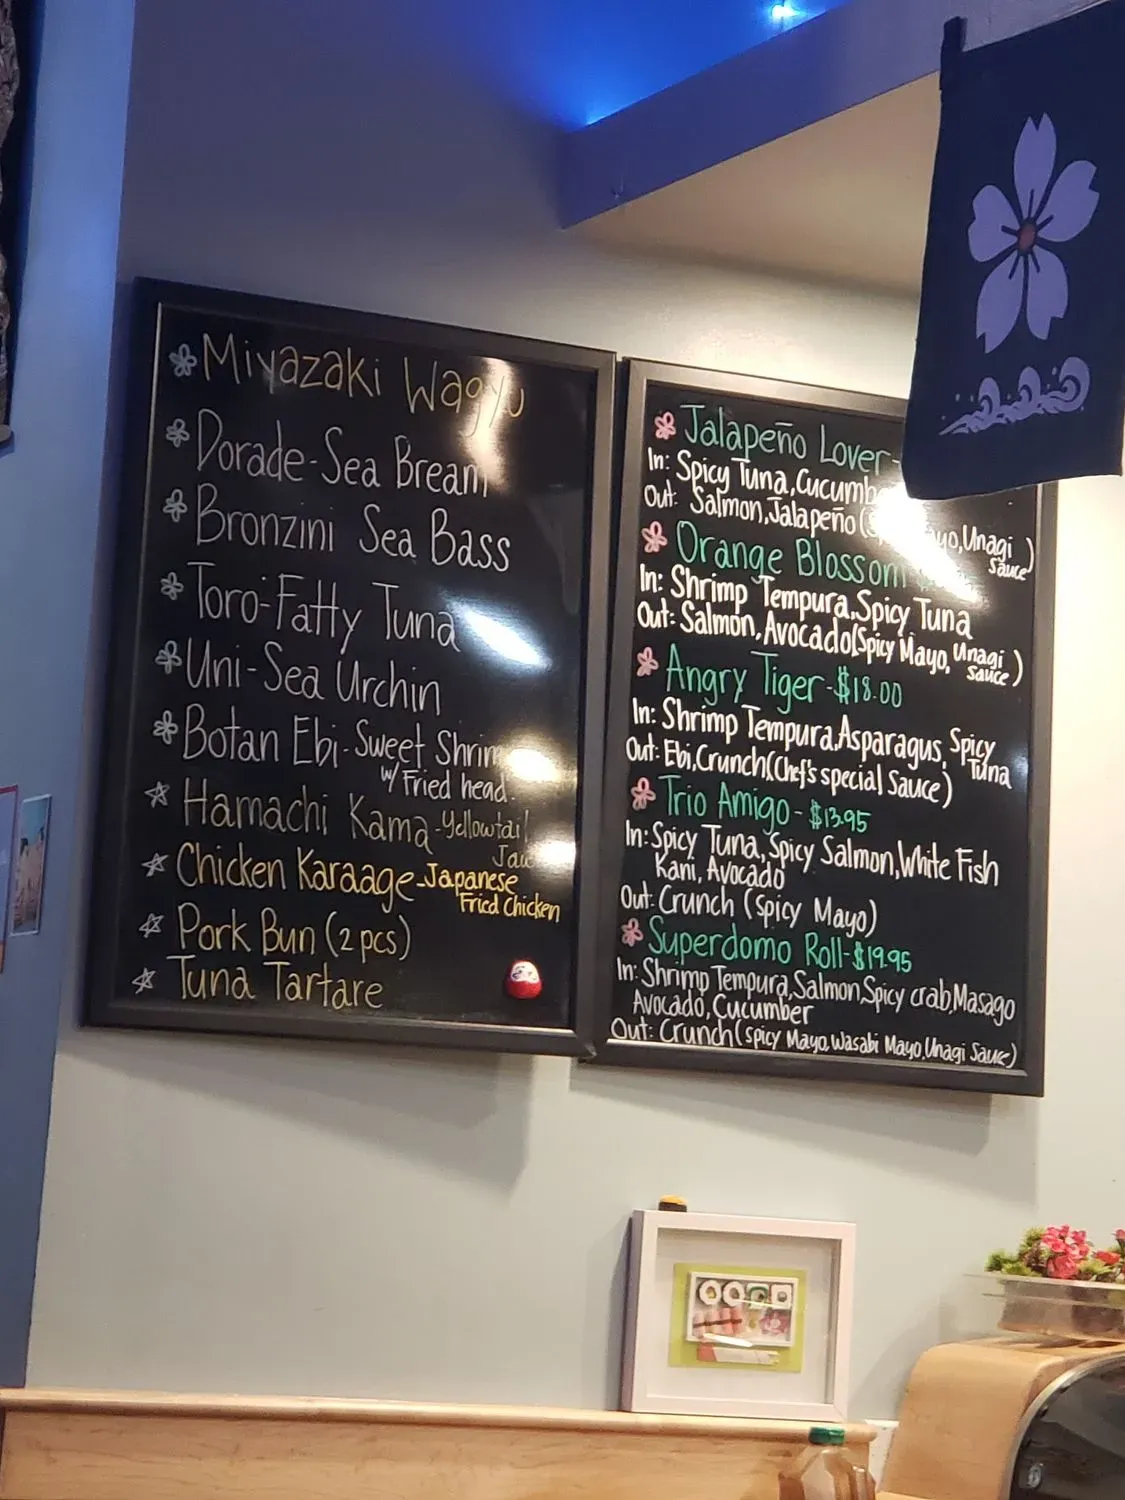 Miyazaki Wagyu
Dorade-Sea Bream
Bronzini Sea Bass
Toro-Fatty Tuna
Uni-Sea Urchin
Botan Ebi-Sweet
w/ Fried head
Hamachi Kama-Yellowtail
Jaw
Chicken Karaage-Japanese
Fried Chicken
Pork Bun (2pcs)
Tuna Tartare
Jalapeño Lover-
In: Spicy Tuna,
Out: Salmon, Jalapeño ( Unagi
Sauce)
Orange Blossom
In: Shrimp Tempura, Spicy Tuna
Out: Salmon, Avocado(Spicy Mayo, Unagi
Sauce)
Angry Tiger-$18.00
In: Shrimp Tempura, Asparagus, Spicy
Tuna
Out: Ebi, Crunch(Chef's special Sauce)
Trio Amigo-$13.95
In: Spicy Tuna, Spicy Salmon, White Fish
Kani, Avocado
Out: Crunch (Spicy Mayo)
Superdomo Roll-$19.95
In: Shrimp Tempura, Salmon, Spicy crab, Masago
Avocado, Cucumber
Out: Crunch(spicy Mayo, Wasabi Mayo, Unagi Sauce)